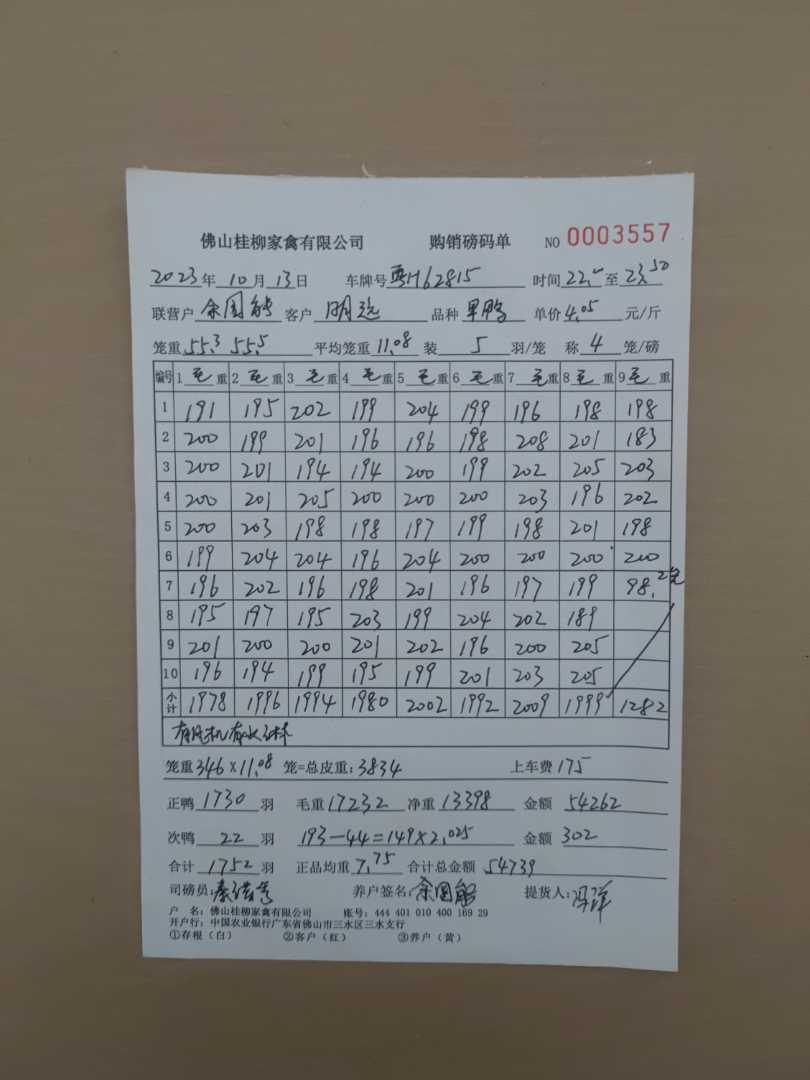 佛山桂柳家禽有限公司 购销磅码单 NO 0003557
2023年10月13日 车牌号 粤H62815 时间 22. 至 23.50
联营户 余国能 客户 明远 品种 单价 4.05 元/斤
笼重 55.3 55.5 平均笼重 11.08 装 5 羽/笼 称 4 笼/磅
编号 1 毛 重 2 毛 重 3 毛 重 4 毛 重 5 毛 重 6 毛 重 7 毛 重 8 毛 重 9 毛 重
1 191 195 202 199 204 199 196 198 198
2 200 199 201 196 196 198 208 201 183
3 200 201 194 194 200 199 202 205 203
4 200 201 205 200 200 200 203 196 202
5 200 203 198 198 197 199 198 201 198
6 199 204 204 196 204 200 200 200 200
7 196 202 196 198 201 196 197 199 98. 2笼
8 195 197 195 203 199 204 202 189
9 201 200 200 201 202 196 200 205
10 196 194 199 195 199 201 203 205
小计 1978 1996 1994 1980 2002 1992 2009 1999 1282
有风机有水
笼重 346×11.08 笼=总皮重: 3834 上车费 175
正鸭 1730 羽 毛重 17232 净重 13398 金额 54262
次鸭 22 羽 193-44=149×2.025 金额 302
合计 1752 羽 正品均重 7.75 合计总金额 54739
司磅员: 养户签名: 余国能 提货人: 冯洋
户 名: 佛山桂柳家禽有限公司 账号: 444 401 010 400 169 29
开户行: 中国农业银行广东省佛山市三水区三水支行
①存根（白） ②客户（红） ③养户（黄）